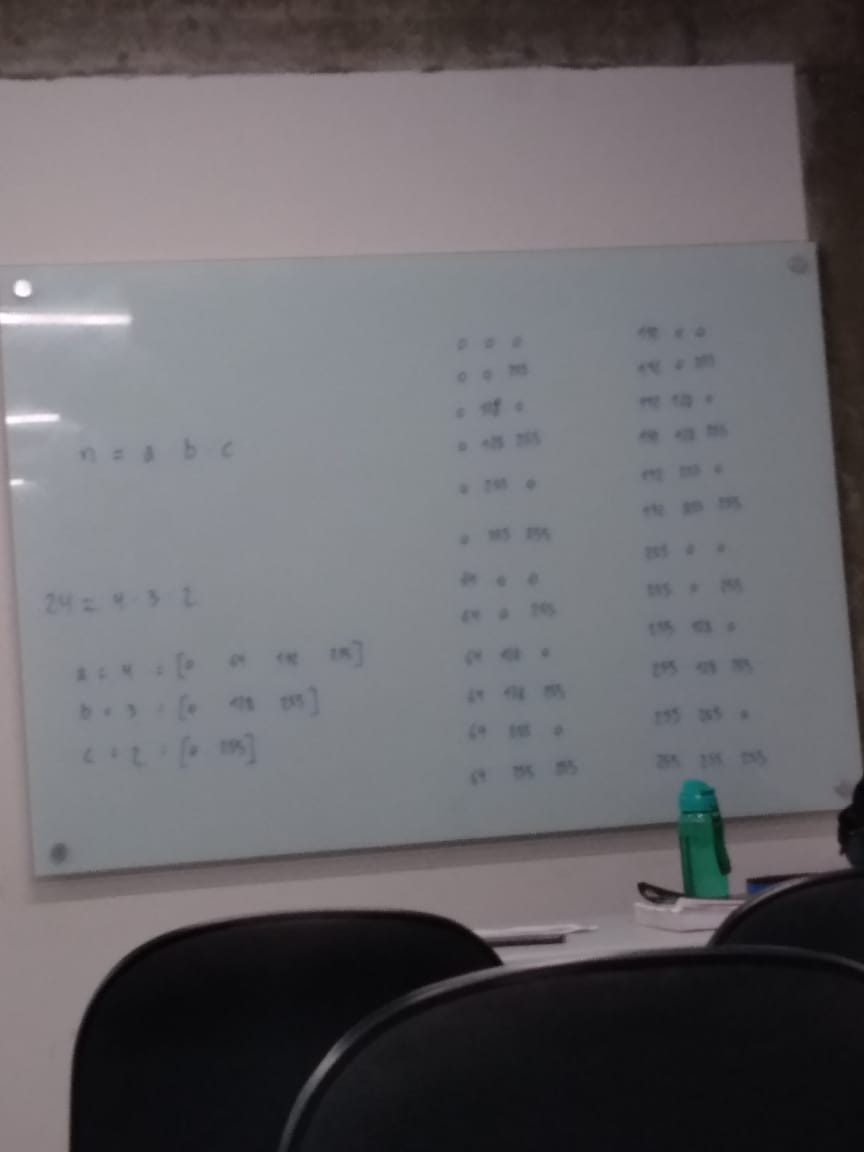 n = a b c
24 = 4 · 3 · 2
a = 4 = [0 64 192 255]
b = 3 = [0 128 255]
c = 2 = [0 255]
0 0 0
0 0 255
0 128 0
0 128 255
0 255 0
0 255 255
64 0 0
64 0 255
64 128 0
64 128 255
64 255 0
64 255 255
192 0 0
192 0 255
192 128 0
192 128 255
192 255 0
192 255 255
255 0 0
255 0 255
255 128 0
255 128 255
255 255 0
255 255 255